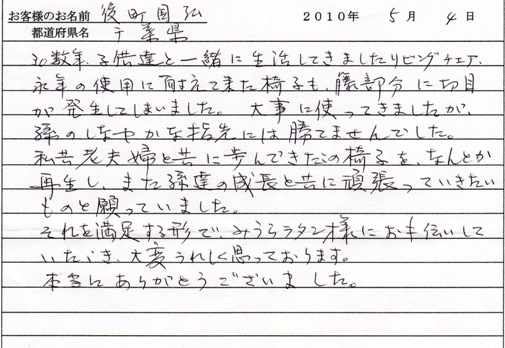 お客様のお名前 後町国弘 2010年 5月 4日
都道府県名 千葉県
30数年、子供達と一緒に生活してきましたリビングチェア、
永年の使用に耐えて来た椅子も、籐部分に切目
が発生してしまいました。 大事に使ってきましたが、
孫のしなやかな指先には勝てませんでした。
私共老夫婦と共に歩んできたこの椅子を、なんとか
再生し、また孫達の成長と共に頑張っていきたい
ものと願っていました。
それを満足する形で、みうらラタン様にお手伝いして
いただき、大変うれしく思っております。
本当にありがとうございました。